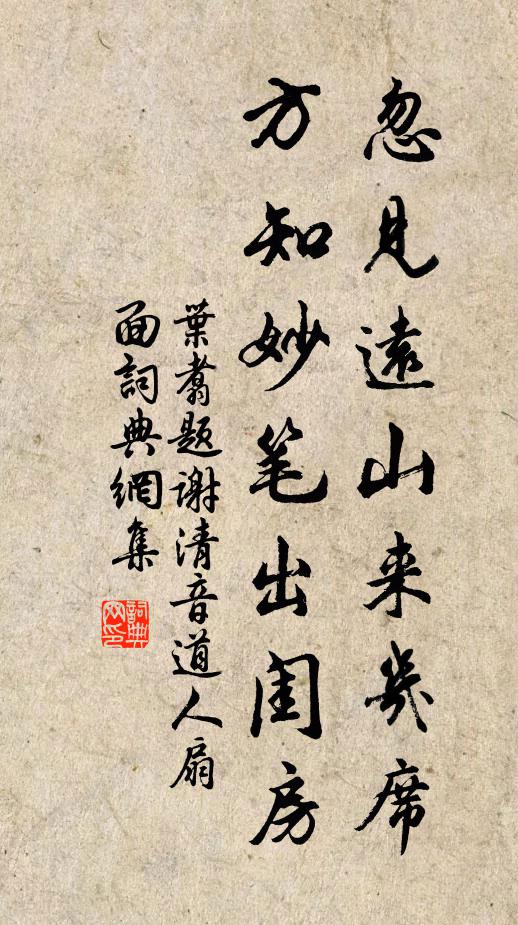 忽見遠山来幾席
方知妙笔出閨房
葉翥题謝清音道人扇
面詞典網集
詞典
网印